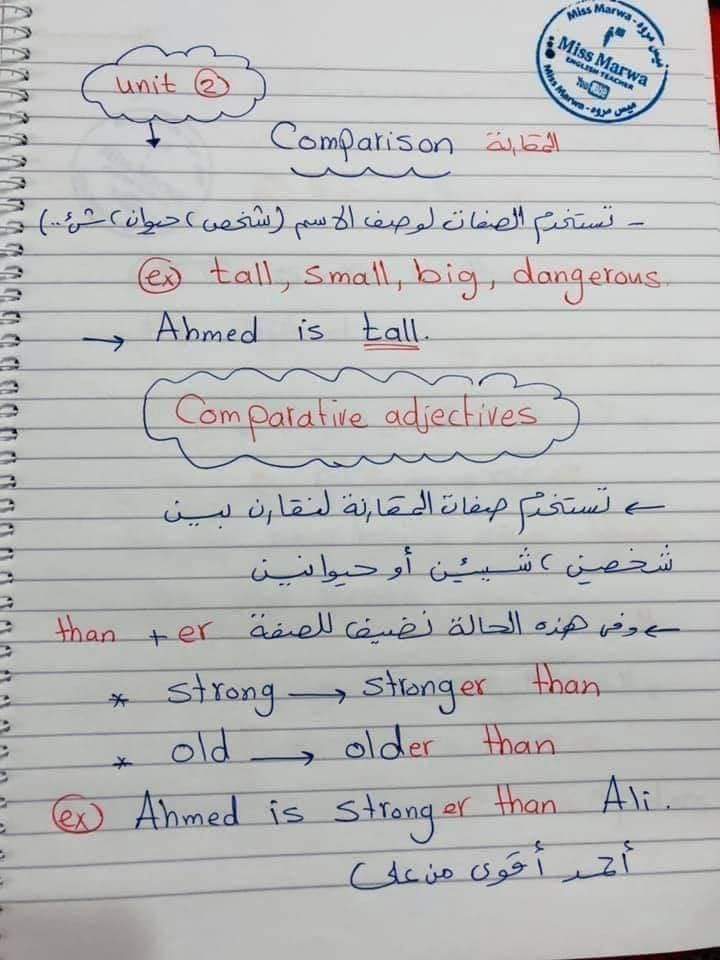 Miss Marwa - ميس مروه
Miss Marwa
ENGLISH TEACHER
YouTube
Miss Marwa - ميس مروه
unit ②
Comparison المقارنة
- تستخدم الصفات لوصف الاسم (شخص، حيوان، شئ..)
ex tall, small, big, dangerous.
→ Ahmed is tall.
Comparative adjectives
← تستخدم صفات المقارنة لنقارن بين
شخصين، شيئين أو حيوانين
← وفى هذه الحالة نضيف للصفة er + than
* strong → stronger than
* old → older than
ex Ahmed is stronger than Ali.
أحمد أقوى من على